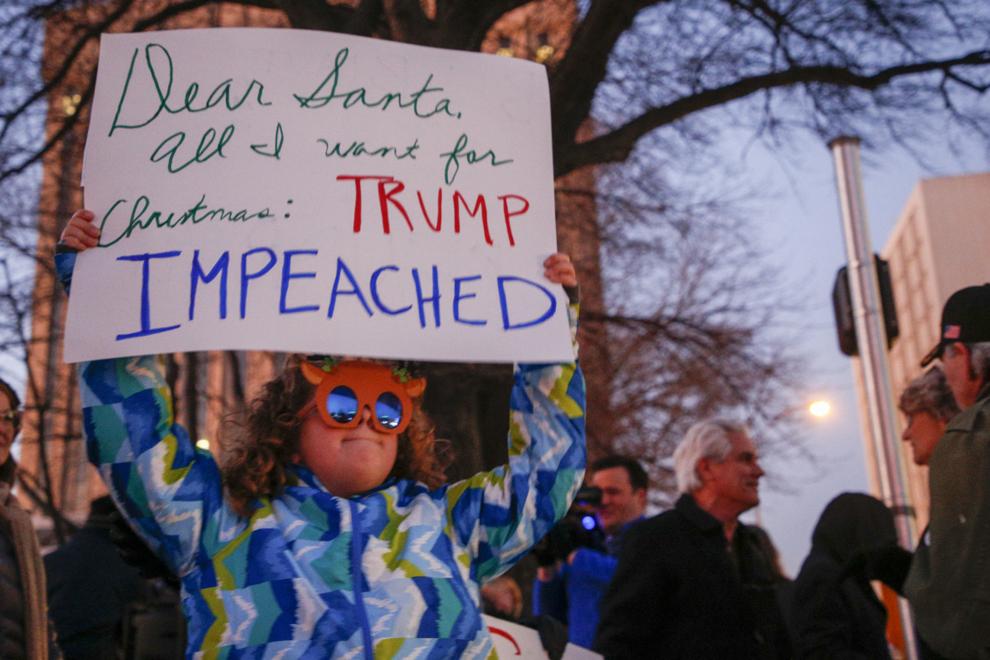 Dear Santa,
All I want for
Christmas: TRUMP
IMPEACHED